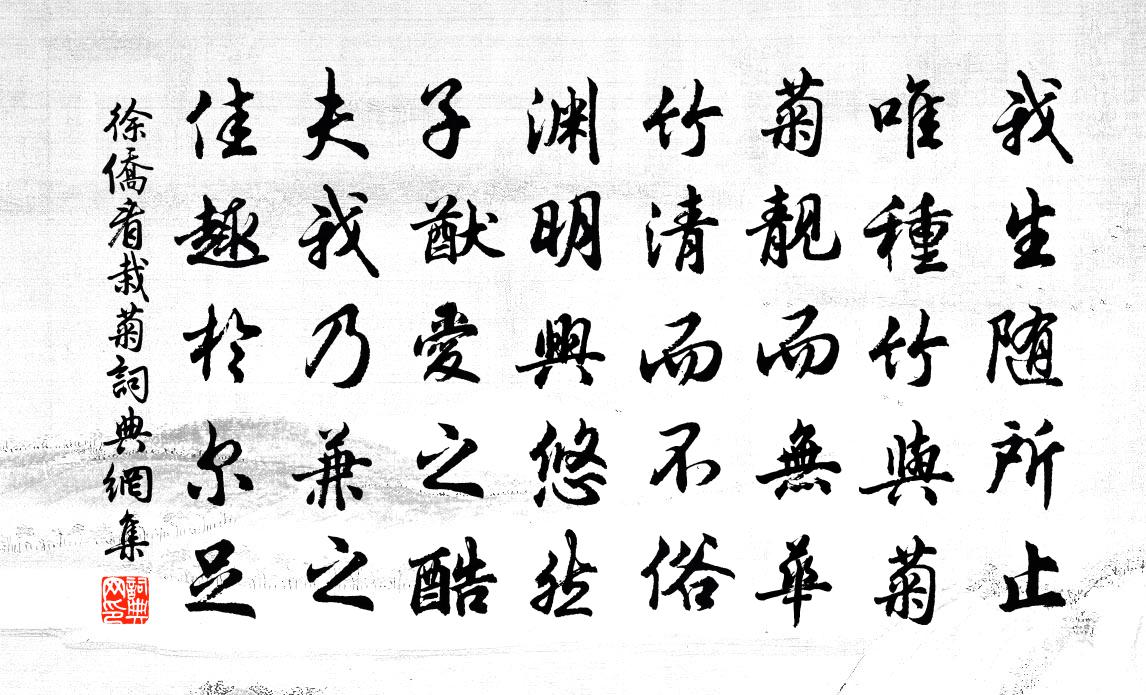 我生随所止
唯種竹與菊
菊靚而無華
竹清而不俗
渊明興悠然
子猷愛之酷
夫我乃兼之
佳趣於尔足
徐僑看栽菊詞典網集
詞典網印